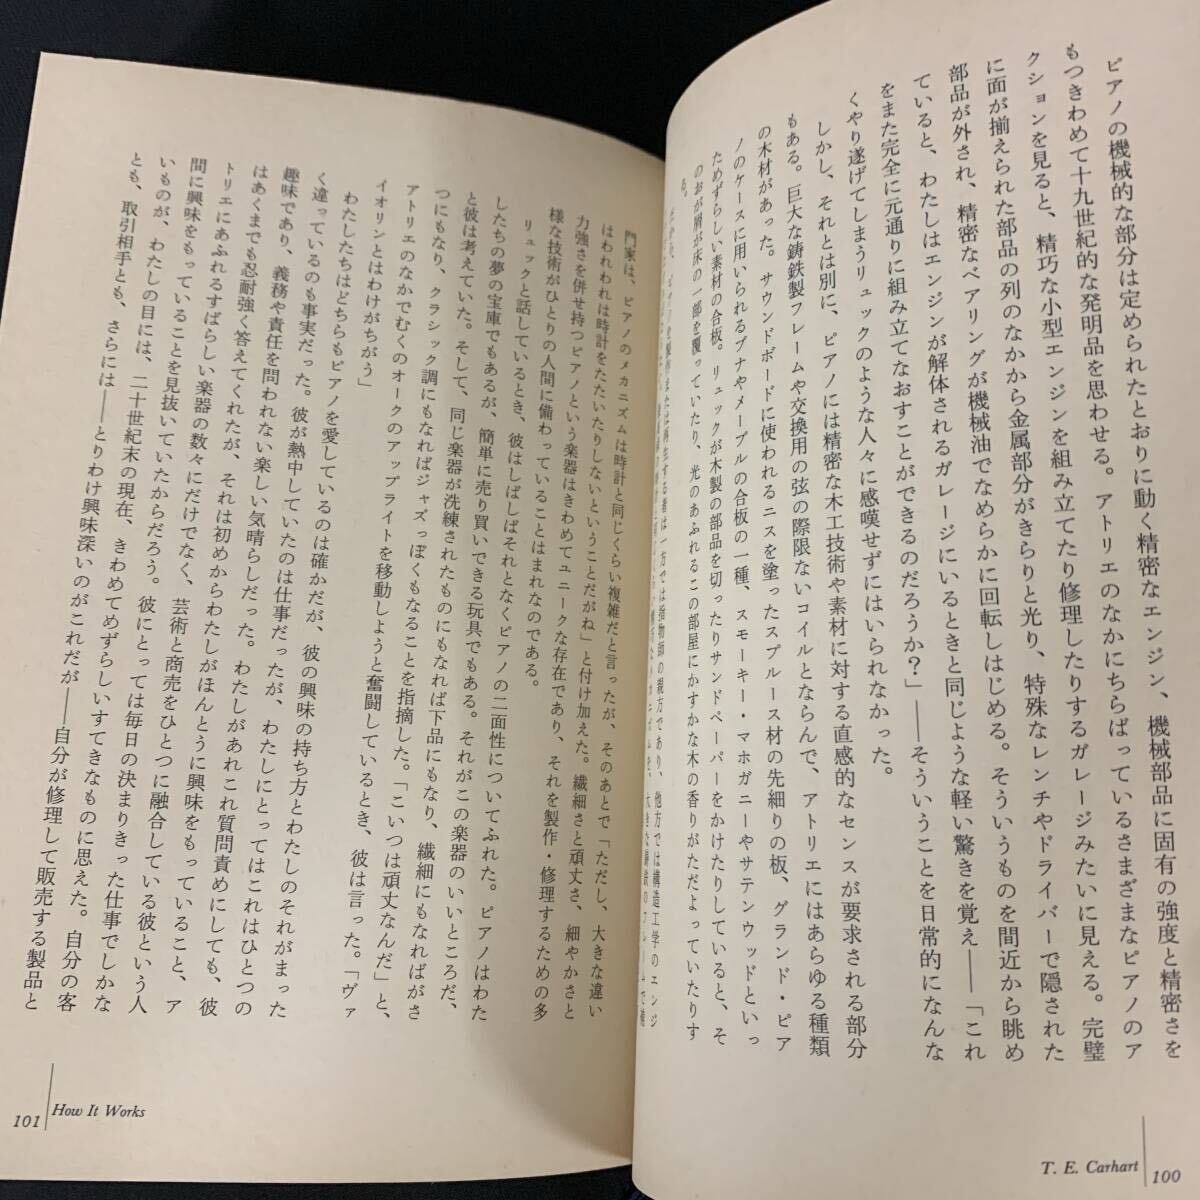 ピアノの機械的な部分は定められたとおりに動く精密なエンジン、機械部品に固有の強度と精密さを
もつきわめて十九世紀的な発明品を思わせる。アトリエのなかにちらばっているさまざまなピアノのア
クションを見ると、精巧な小型エンジンを組み立てたり修理したりするガレージみたいに見える。完璧
に面が揃えられた部品の列のなかから金属部分がきらりと光り、特殊なレンチやドライバーで隠された
部品が外され、精密なベアリングが機械油でなめらかに回転しはじめる。そういうものを間近から眺め
ていると、わたしはエンジンが解体されるガレージにいるときと同じような軽い驚きを覚え――「これ
をまた完全に元通りに組み立てなおすことができるのだろうか？」――そういうことを日常的になんな
くやり遂げてしまうリュックのような人々に感嘆せずにはいられなかった。
しかし、それとは別に、ピアノには精密な木工技術や素材に対する直感的なセンスが要求される部分
もある。巨大な鋳鉄製フレームや交換用の弦の際限ないコイルとならんで、アトリエにはあらゆる種類
の木材があった。サウンドボードに使われるニスを塗ったスプルース材の先細りの板、グランド・ピア
ノのケースに用いられるブナやメープルの合板の一種、スモーキー・マホガニーやサテンウッドといっ
ためずらしい素材の合板。リュックが木製の部品を切ったりサンドペーパーをかけたりしていると、そ
のおが屑が床の一部を覆っていたり、光のあふれるこの部屋にかすかな木の香りがただよっていたりす
る。
は一方では指物師の親方であり、他方では構造工学のエンジ
T. E. Carhart 100
門家は、ピアノのメカニズムは時計と同じくらい複雑だと言ったが、そのあとで「ただし、大きな違い
はわれわれは時計をたたいたりしないということだがね」と付け加えた。繊細さと頑丈さ、細やかさと
力強さを併せ持つピアノという楽器はきわめてユニークな存在であり、それを製作・修理するための多
様な技術がひとりの人間に備わっていることはまれなのである。
リュックと話しているとき、彼はしばしばそれとなくピアノの二面性についてふれた。ピアノはわた
したちの夢の宝庫でもあるが、簡単に売り買いできる玩具でもある。それがこの楽器のいいところだ、
と彼は考えていた。そして、同じ楽器が洗練されたものにもなれば下品にもなり、繊細にもなればがさ
つにもなり、クラシック調にもなればジャズっぽくもなることを指摘した。「こいつは頑丈なんだ」と、
アトリエのなかでむくのオークのアップライトを移動しようと奮闘しているとき、彼は言った。「ヴァ
イオリンとはわけがちがう」
わたしたちはどちらもピアノを愛しているのは確かだが、彼の興味の持ち方とわたしのそれがまった
く違っているのも事実だった。彼が熱中していたのは仕事だったが、わたしにとってはこれはひとつの
趣味であり、義務や責任を問われない楽しい気晴らしだった。わたしがあれこれ質問責めにしても、彼
はあくまでも忍耐強く答えてくれたが、それは初めからわたしがほんとうに興味をもっていること、ア
トリエにあふれるすばらしい楽器の数々にだけでなく、芸術と商売をひとつに融合している彼という人
間に興味をもっていることを見抜いていたからだろう。彼にとっては毎日の決まりきった仕事でしかな
いものが、わたしの目には、二十世紀末の現在、きわめてめずらしいすてきなものに思えた。自分の客
とも、取引相手とも、さらには――とりわけ興味深いのがこれだが――自分が修理して販売する製品と
101 How It Works